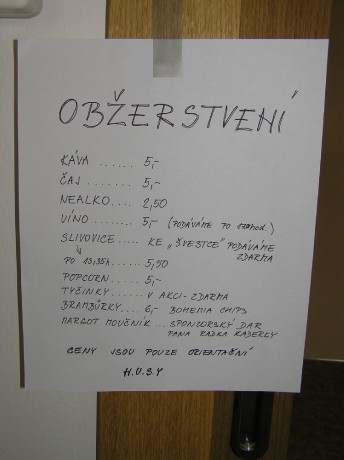 OBŽERSTVENÍ
KÁVA ...... 5,-
ČAJ ....... 5,-
NEALKO.... 2,50
VÍNO ...... 5,- (PODÁVÁME PO 17.00HOD.)
SLIVOVICE ..... KE „ŠVESTCE" PODÁVÁME
ZDARMA
PO 13,35h.... 5,50
POPCORN.... 5,-
TYČINKY ..... V AKCI-ZDARMA
BRAMBŮRKY.... 6,- BOHEMIA CHIPS
MARGOT MOUČNÍK ... SPONZORSKÝ DAR
PANA RADKA KADERKY
CENY JSOU POUZE ORIENTAČNÍ
H.U.S.Y